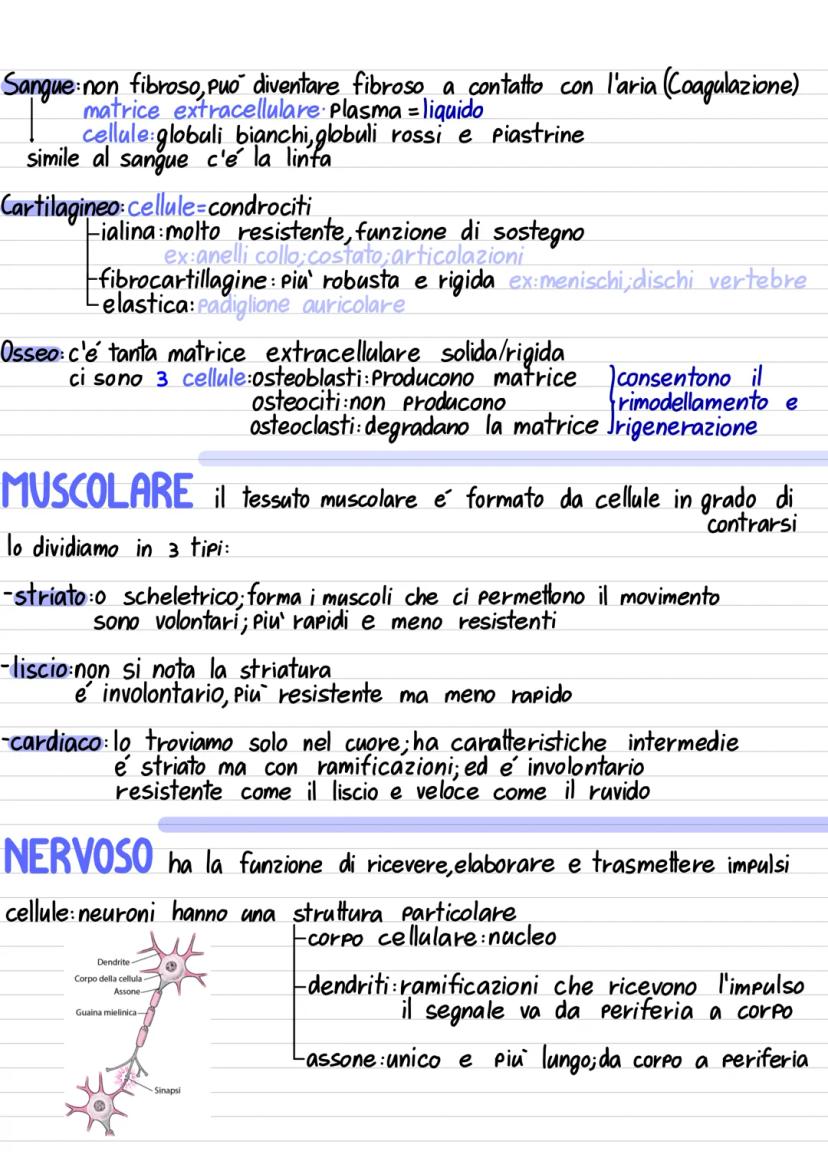 Sangue: non fibroso, può diventare fibroso a contatto con l'aria (Coagulazione)
matrice extracellulare: plasma = liquido
cellule: globuli bianchi, globuli rossi e piastrine
simile al sangue c'é la linfa
Cartilagineo: cellule = condrociti
ialina: molto resistente, funzione di sostegno
ex: anelli collo; costato; articolazioni
fibrocartillagine: piu' robusta e rigida ex: menischi; dischi vertebre
elastica: padiglione auricolare
Osseo: c'é tanta matrice extracellulare solida/rigida
ci sono 3 cellule: osteoblasti: producono matrice consentono il
osteociti: non producono rimodellamento e
osteoclasti: degradano la matrice rigenerazione
MUSCOLARE il tessuto muscolare é formato da cellule in grado di
contrarsi
lo dividiamo in 3 tipi:
-striato: o scheletrico; forma i muscoli che ci permettono il movimento
sono volontari; piu' rapidi e meno resistenti
-liscio: non si nota la striatura
é involontario, più resistente ma meno rapido
-cardiaco: lo troviamo solo nel cuore; ha caratteristiche intermedie
é striato ma con ramificazioni; ed é involontario
resistente come il liscio e veloce come il ruvido
NERVOSO ha la funzione di ricevere, elaborare e trasmettere impulsi
cellule: neuroni hanno una struttura particolare
corpo cellulare: nucleo
dendriti: ramificazioni che ricevono l'impulso
il segnale va da periferia a corpo
assone: unico e più lungo; da corpo a periferia
Dendrite
Corpo della cellula
Assone
Guaina mielinica
Sinapsi